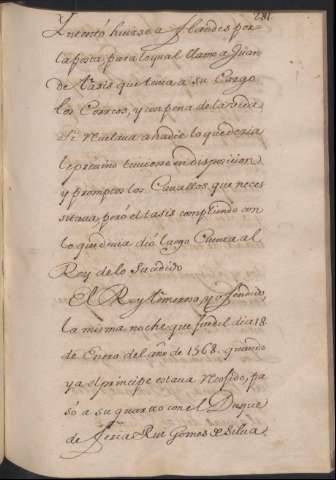 281.
Yntentó huirse a flandes por
la posta, para lo qual llamo a Juan
de tasis que tenia a su Cargo
los Correos, y con pena de la vida
le previno tuviese en disposicion
y promptos los Cavallos, que neces
sitava, peró el tasis cumpliendo con
lo que devia dió luego Cuenta al
Rey de lo Sucedido
El Rey temeroso, y ofendido,
la misma noche que fue el dia 18
de Enero del año de 1568. quando
ya el principe estava Recojido, pa
só a su quarto con el Duque
de feria Rui Gomes de Silva